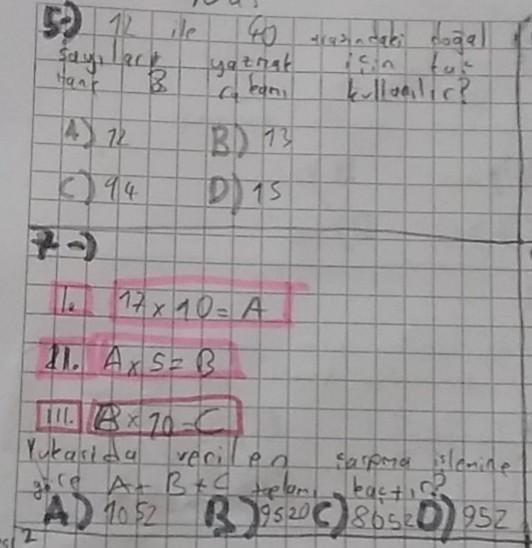 5-) 12 ile 40 arasındaki doğal
sayıları yazmak için kaç
tane 3 rakamı kullanılır?
A) 12 B) 13
C) 14 D) 15
7-)
I. 17 x 10 = A
II. A x 5 = B
III. B x 10 = C
Yukarıda verilen çarpma işlemine
göre A + B + C toplamı kaçtır?
A) 1052 B) 9520 C) 8652 D) 952
2